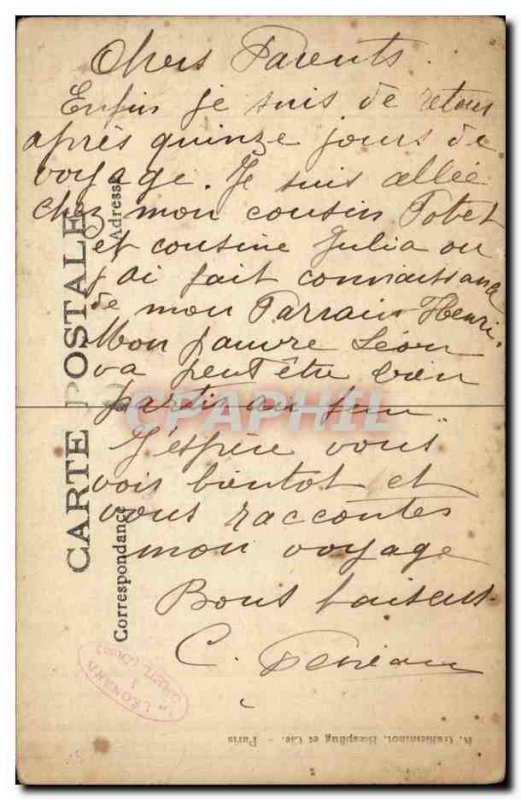 Chers Parents.
Enfin je suis de retour
après quinze jours de
voyage. Je suis allée
chez mon cousin
et cousine Julia ou
j'ai fait connaissance
de mon Parrain Henri.
Mon pauvre Léon
va peut être bien
partir au feu
J'espère vous
vois bientot et
vous raccontes
mon voyage
Bons baisers
C.
CARTE POSTALE
Correspondance
Adresse
CPAPHIL
LEONARD
et Cie. - Paris